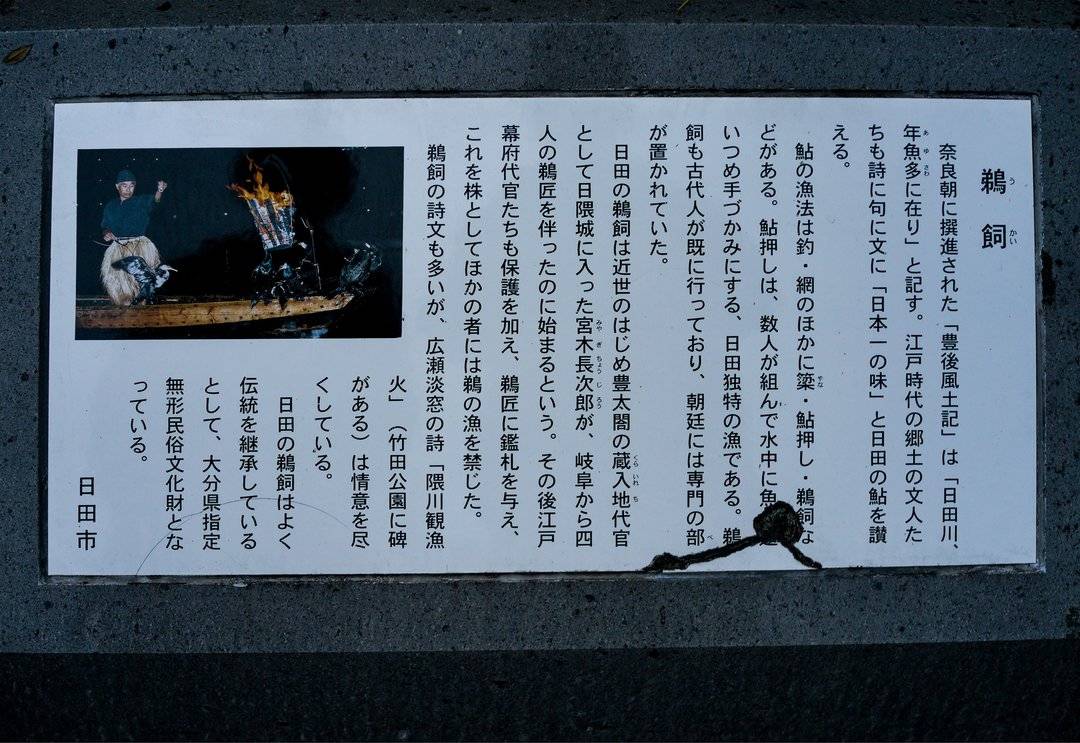 鵜飼
うかい
奈良朝に撰進された「豊後風土記」は「日田川、
年魚多に在り」と記す。江戸時代の郷土の文人た
あゆさわ
ちも詩に句に文に「日本一の味」と日田の鮎を讃
える。
鮎の漁法は釣・網のほかに簗・鮎押し・鵜飼な
やな
どがある。鮎押しは、数人が組んで水中に魚
いつめ手づかみにする、日田独特の漁である。鵜
飼も古代人が既に行っており、朝廷には専門の部
べ
が置かれていた。
日田の鵜飼は近世のはじめ豊太閤の蔵入地代官
くらいれち
として日隈城に入った宮木長次郎が、岐阜から四
みやぎちょうじろう
人の鵜匠を伴ったのに始まるという。その後江戸
幕府代官たちも保護を加え、鵜匠に鑑札を与え、
これを株としてほかの者には鵜の漁を禁じた。
鵜飼の詩文も多いが、広瀬淡窓の詩「隈川観漁
火」（竹田公園に碑
がある）は情意を尽
くしている。
日田の鵜飼はよく
伝統を継承している
として、大分県指定
無形民俗文化財とな
っている。
日田市